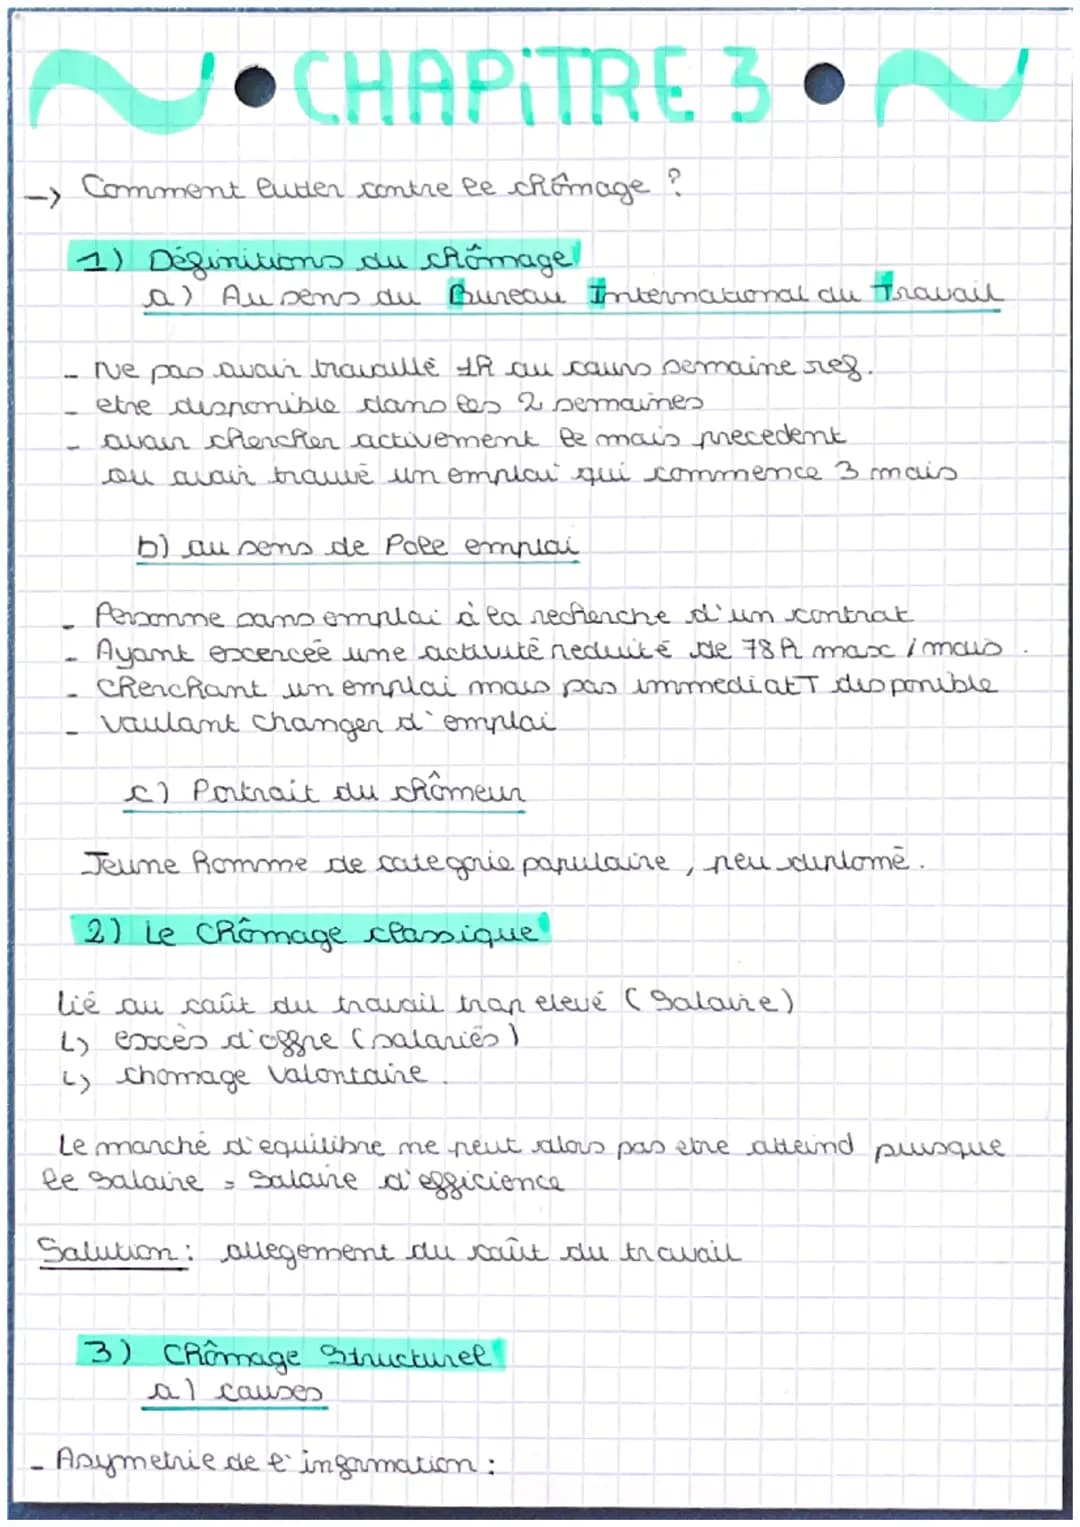 • CHAPiTRE 3 •
-> Comment lutter contre le chômage ?
1) Définitions du chômage
a) Au sens du Bureau International du Travail
- Ne pas avoir travaillé 1h au cours semaine ref.
- etre disponible dans les 2 semaines
- avoir chercher activement le mois precedent
ou avoir trouvé un emploi qui commence 3 mois
b) au sens de Pole emploi
- Personne sans emploi à la recherche d'un contrat
- Ayant excercée une activité reduité de 78h max / mois.
- Cherchant un emploi mais pas immediatT disponible
- Voulant changer d'emploi
c) Portrait du chômeur
Jeune homme de categorie populaire, peu diplomé.
2) Le Chômage classique
lié au coût du travail trop elevé (Salaire)
↳ excès d'offre (salariés)
↳ chomage Volontaire.
Le marché d'equilibre ne peut alors pas etre atteind puisque
le salaire = Salaire d'efficience
Solution : allegement du coût du travail
3) Chômage Structurel
a) causes
- Asymetrie de l'information :